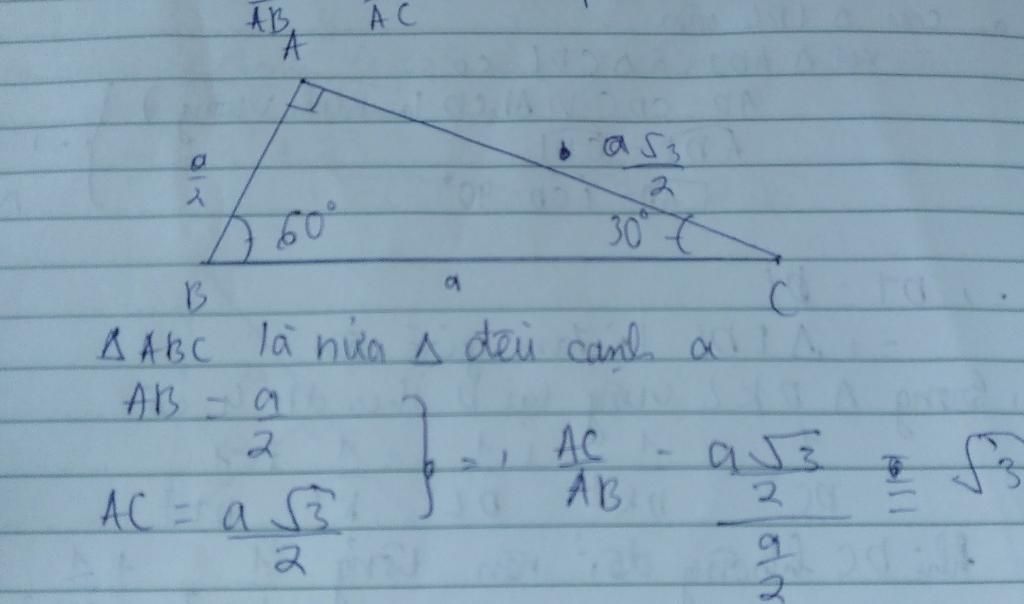 AB AC
A
a/2
a√3/2
60°
30°
B a C
Δ ABC là nửa Δ đều cạnh a
AB = a/2
AC = a√3/2
} => AC/AB = (a√3/2)/(a/2) = √3